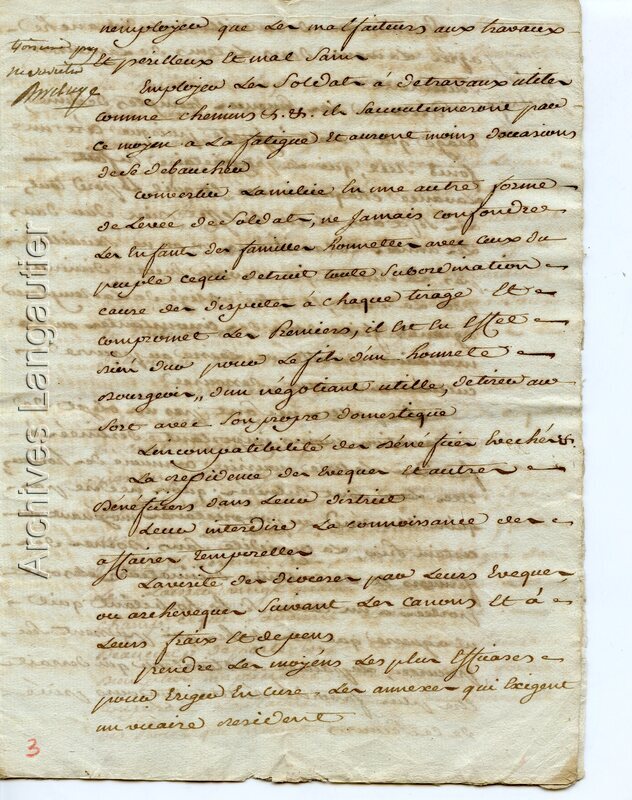 n'employer que Les malfaiteurs aux travaux
Et perilleux Et mal Sains
Employer Les Soldats à de travaux utiles
comme chemins &. &. ils Saccoutumeront par
ce moyen a La fatigue Et auront moins doccasions
de Se debaucher
convertir La milice En une autre forme
de Levée de Soldats, ne Jamais confondre
Les Enfants des familles honnettes avec ceux du
peuple ce qui detruit toute Subordination
cause des disputes à chaque tirage Et
compromet Les Premiers, il Est En Effet
rien dur pour Le fils d'un honnete
Bourgeois, d'un négotiant utille, de tirer au
Sort avec Son propre domestique
L'incompatibilité des Bénéfices Evechés &.
La residence des Eveques Et autres
Bénéficiers dans Leur district
Leur interdire La connoissance des
affaires Temporelles
La visite des dioceses par Leurs Eveques,
ou archeveques Suivant Les canons Et à
Leurs fraix Et depens
prendre Les moyens Les plus Efficases
pour Eriger En cure, Les annexes qui Exigent
un vicaire resident
3
Archives Langautier